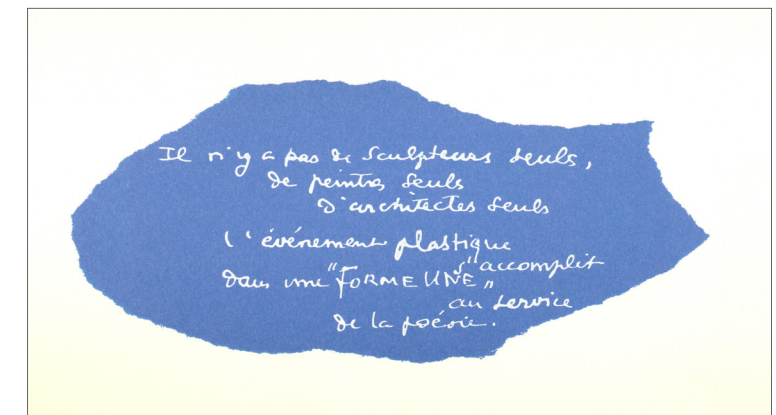 Il n'y a pas de sculpteurs seuls,
de peintres seuls
d'architectes seuls
l'événement plastique
s'accomplit
dans une "FORME UNE"
au service
de la poésie.